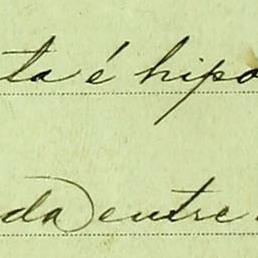 ta é hipo
da) entre